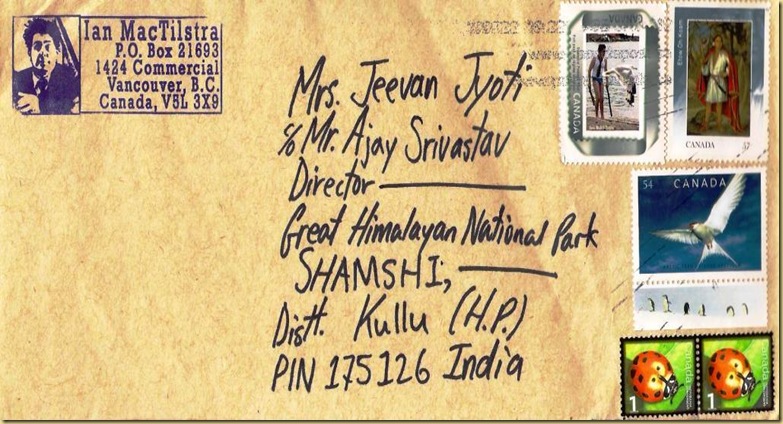 Ian MacTilstra
P.O. Box 21693
1424 Commercial
Vancouver, B.C.
Canada, V5L 3X9
Mrs. Jeevan Jyoti
c/o Mr. Ajay Srivastav
Director
Great Himalayan National Park
SHAMSHI,
Distt. Kullu (H.P.)
PIN 175126 India
CANADA
CANADA
CANADA
57
54 CANADA
Canada
1
Canada
1